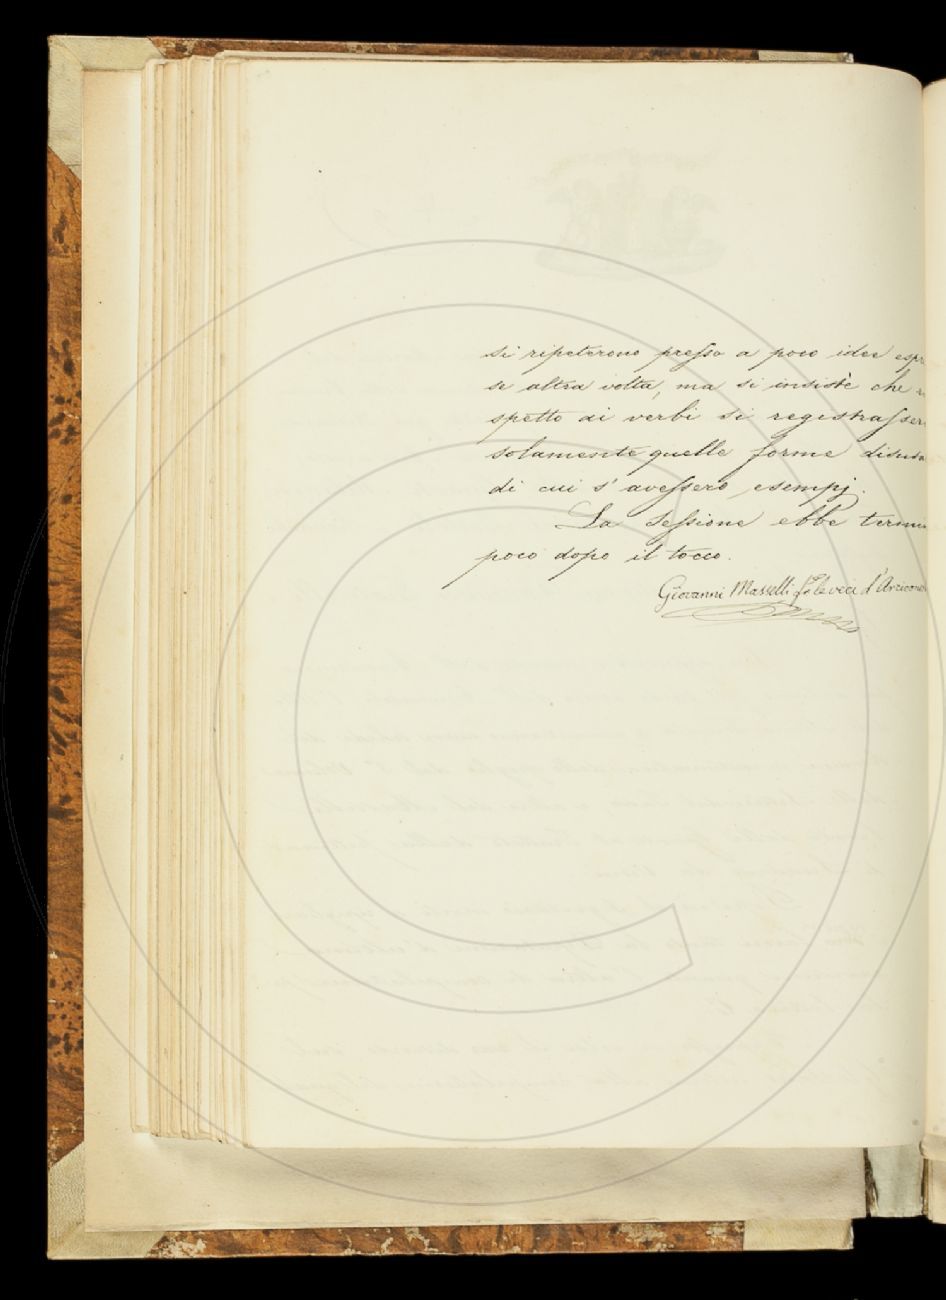 si ripeterono presso a poco idee espr
se altra volta, ma si insistè che
spetto ai verbi si registrasser
solamente quelle forme disusa
di cui s'avessero esempj.
La Sessione ebbe termi
poco dopo il tocco.
Giovanni Masselli fa le veci d'Arcicons